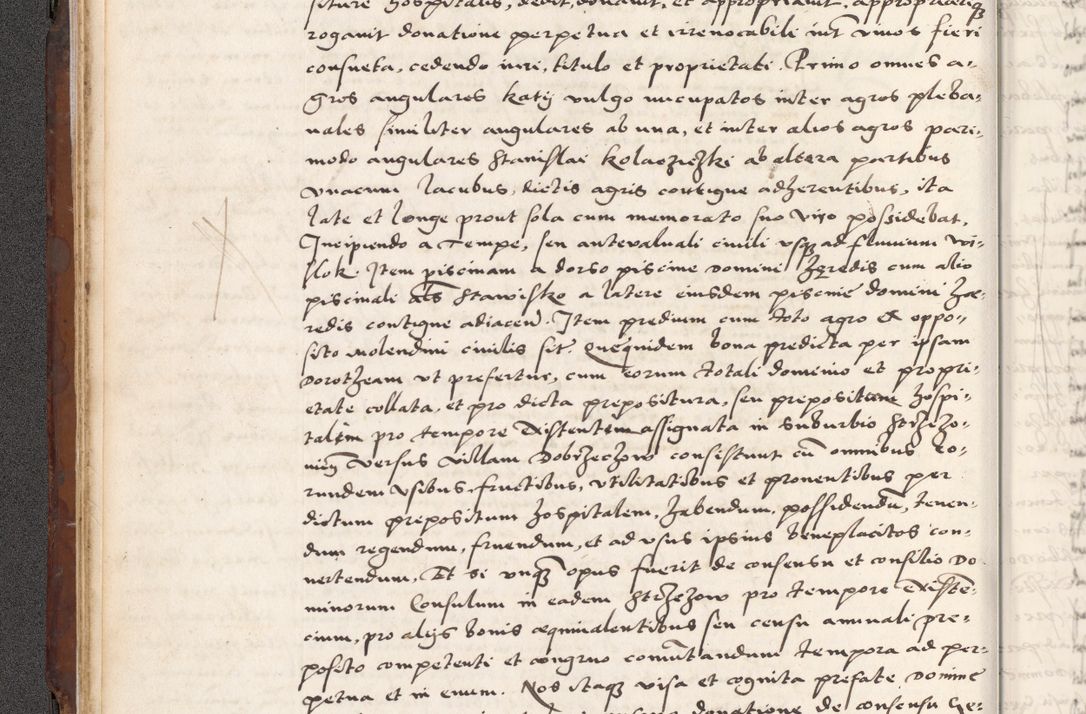 siture hospitalis, dedit, donavit, et appropriavit, appropriatiq̃
rogavit donatione perpetua et irrevocabili int vivos fieri
consueta, cedendo iuri, titulo et proprietati. Primo omnes a-
gros angulares katy vulgo nucupatos inter agros pleba-
nales similiter angulares ab una, et inter alios agros pari-
modo angulares Stanislai ab altera partibus
unacum lacubus, dictis agris contigue adherentibus, ita
late et longe prout sola cum memorato suo viro possidebat.
Incipiendo a Tempe, seu antevaluali civili usq̃ ad fluvium Wi-
slok. Item piscinam a dorso piscine domini heredis cum alio
piscinali als Stawisko a latere eiusdem piscine domini hæ-
redis contigue adiacen̄. Item predium cum toto agro ex oppo-
sito molendini civilis sit. Quequidem bona predicta per ipsam
Dorotheam ut prefertur, cum eorum totali dominio et propri-
etate collata, et pro dicta prepositura, seu prepositum hospi-
talem pro tempore existentem assignata in suburbio Strzezo-
versus villam Dobrzeczow consistunt cū omnibus eo-
rundem usibus, fructibus, utilitatibus et proventibus per
dictum prepositum hospitalem, habendum, possidendū, tenen-
dum regendum, fruendum, et ad usus ipsius beneplacitos con-
vertendum, Et si unq̃ opus fuerit de consensu et consilio Do-
minorum Consulum in eadem Strzezow pro tempore existe-
cium, pro alijs bonis æquivalentibus seu censu annuali pre-
posito competenti et congruo comūtandum tempora ad per-
petua et in evum. Nos itaq̃ visa et cognita prefate Domine
donatione de consensu Ge-